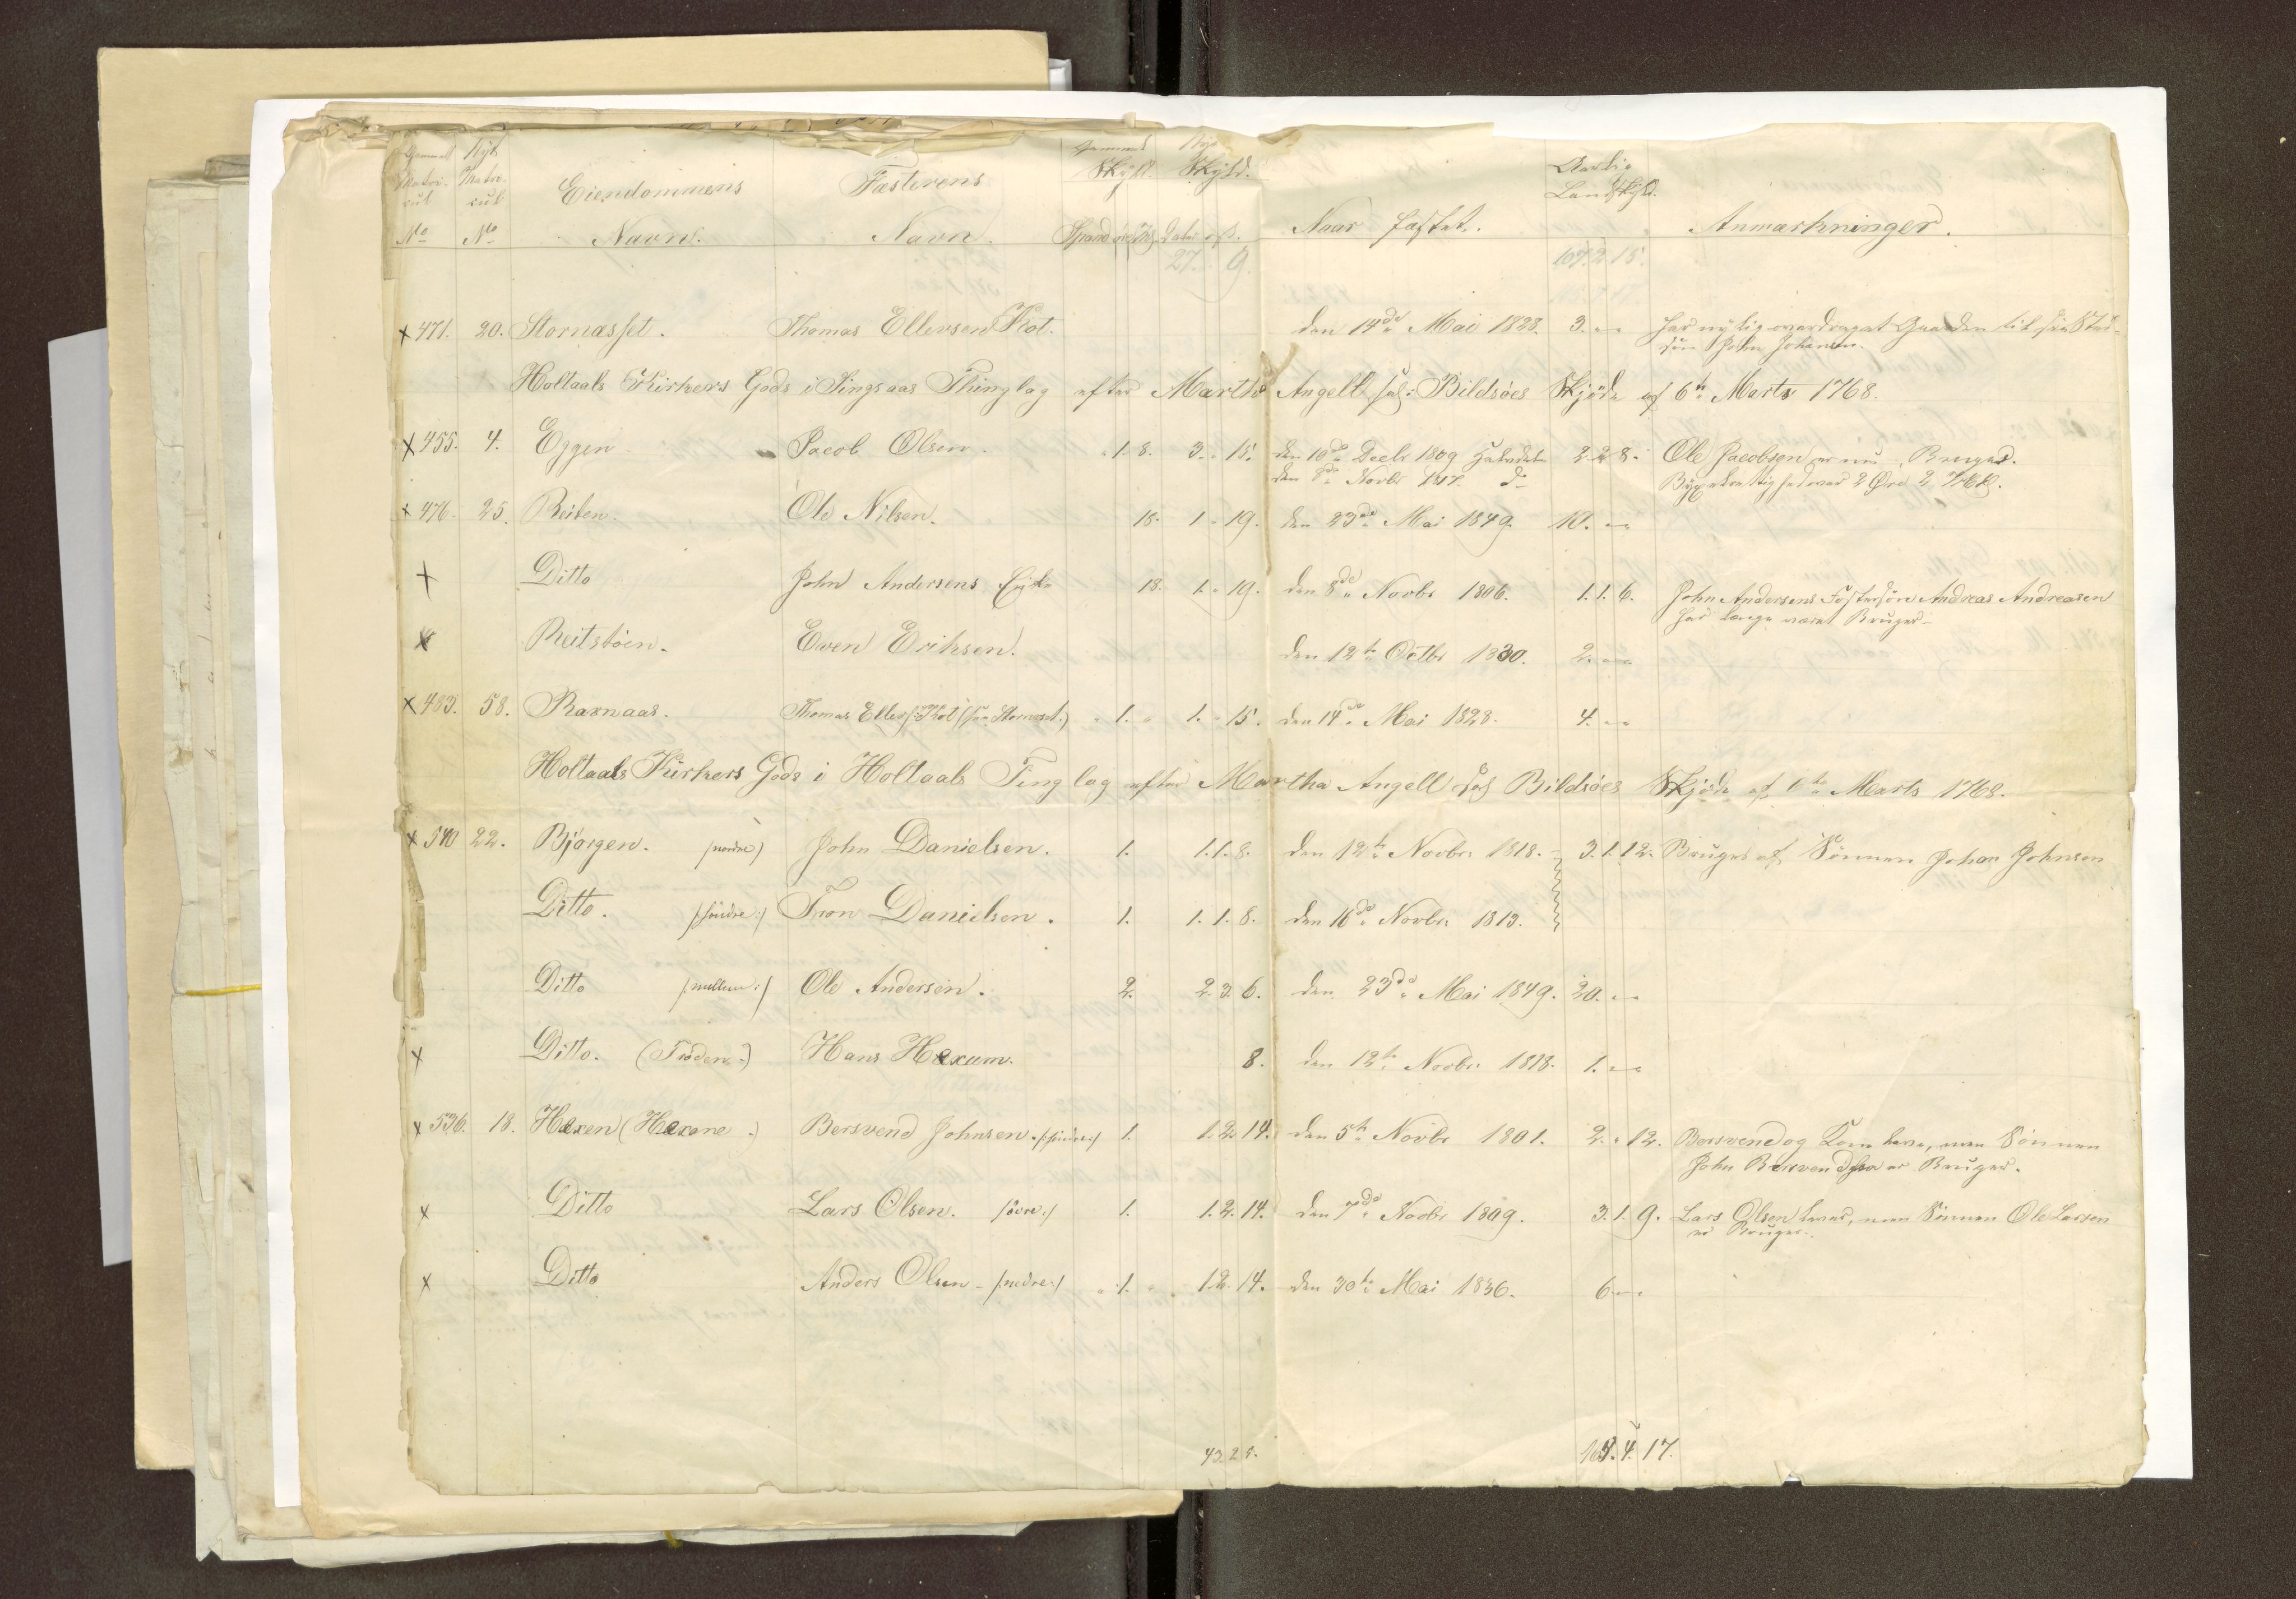 Gammel Matri- cul No Nyt Matri- cul No Eiendommens Navn. Fæsterens Navn. Gammel Skyld. Spand Ører Mkl. Nye Skyld. Daler ort ß. Naar fæstet. Aarlig Landskyld. Anmærkninger.
27. 9. 107. 2 18.
x 471. 20. Stornæsset. Thomas Ellevsen Kot. den 14de Mai 1828. 3. " " har nylig overdraget Gaarden til sin Sted-
søn John Johnsen.
Holtaals Kirkers Gods i Singsaas Thinglag efter Martha Angell sal: Bildsöes Skjöde af 6te Marts 1768.
x 455. 4. Eggen Jacob Olsen. " 1. 8. 3. " 18. den 10de Decbr 1809 Halvdelen 2. 2 8. Ole Jacobsen er nu Bruger.
den 8de Novbr 1817. do Bygselraadighed over 2 Øre 2 Mkl.
x 476. 25. Reiten. Ole Nilsen. 18. 1 " 19. den 23de Mai 1849. 10. " "
x Ditto John Andersens Enke 18. 1. " 19. den 8de Novbr 1806. 1. 1. 6. John Andersens Fostersön Andreas Andreasen
har længe været Bruger.
x Reitstöen. Even Erichsen. den 12te Octbr 1830. 2. " "
x 483. 58. Ramnaas. Thomas Ellevs: Kot (paa Stornæset.) " 1. " 1. " 15. den 14de Mai 1828. 4. " "
Holtaals Kirkers Gods i Holtaals Tinglag efter Martha Angell sal Bildsöes Skjöde af 6te Marts 1768.
x 540 22. Bjørgen. (nordre) John Danielsen. 1. 1. 1. 8. den 12te Novbr: 1818. 3. 1. 12. Bruges af Sönnen Johan Johnsen
Ditto. /:söndre:/ Tron Danielsen. 1. 1. 1. 8. den 16de Novbr: 1813.
Ditto /:mellem:/ Ole Andersen. 2. 2. 3. 6. den 23de Mai 1849. 20. " "
x Ditto. (Tröden:) Hans Hexum. 8. den 12te Novbr: 1818. 1. " "
x 536. 18. Hexen (Hexane.) Bersvend Johnsen. /:söndre:/ 1. 1. 2. 14. den 5te Novbr 1801. 2. " 12. Bersvend og Kone leve, men Sönnen
John Bersvendsen er Bruger.
x Ditto Lars Olsen. /övre:/ 1. 1. 2. 14. den 7de Novbr 1809. 3. 1. 9. Lars Olsen lever, men Sönnen Ole Larsen
er Bruger.
x Ditto Anders Olsen - /nedre:/ " 1. " 1. 2. 14. den 30te Mai 1836. 6. " "
43. 2 5. 4. 17.